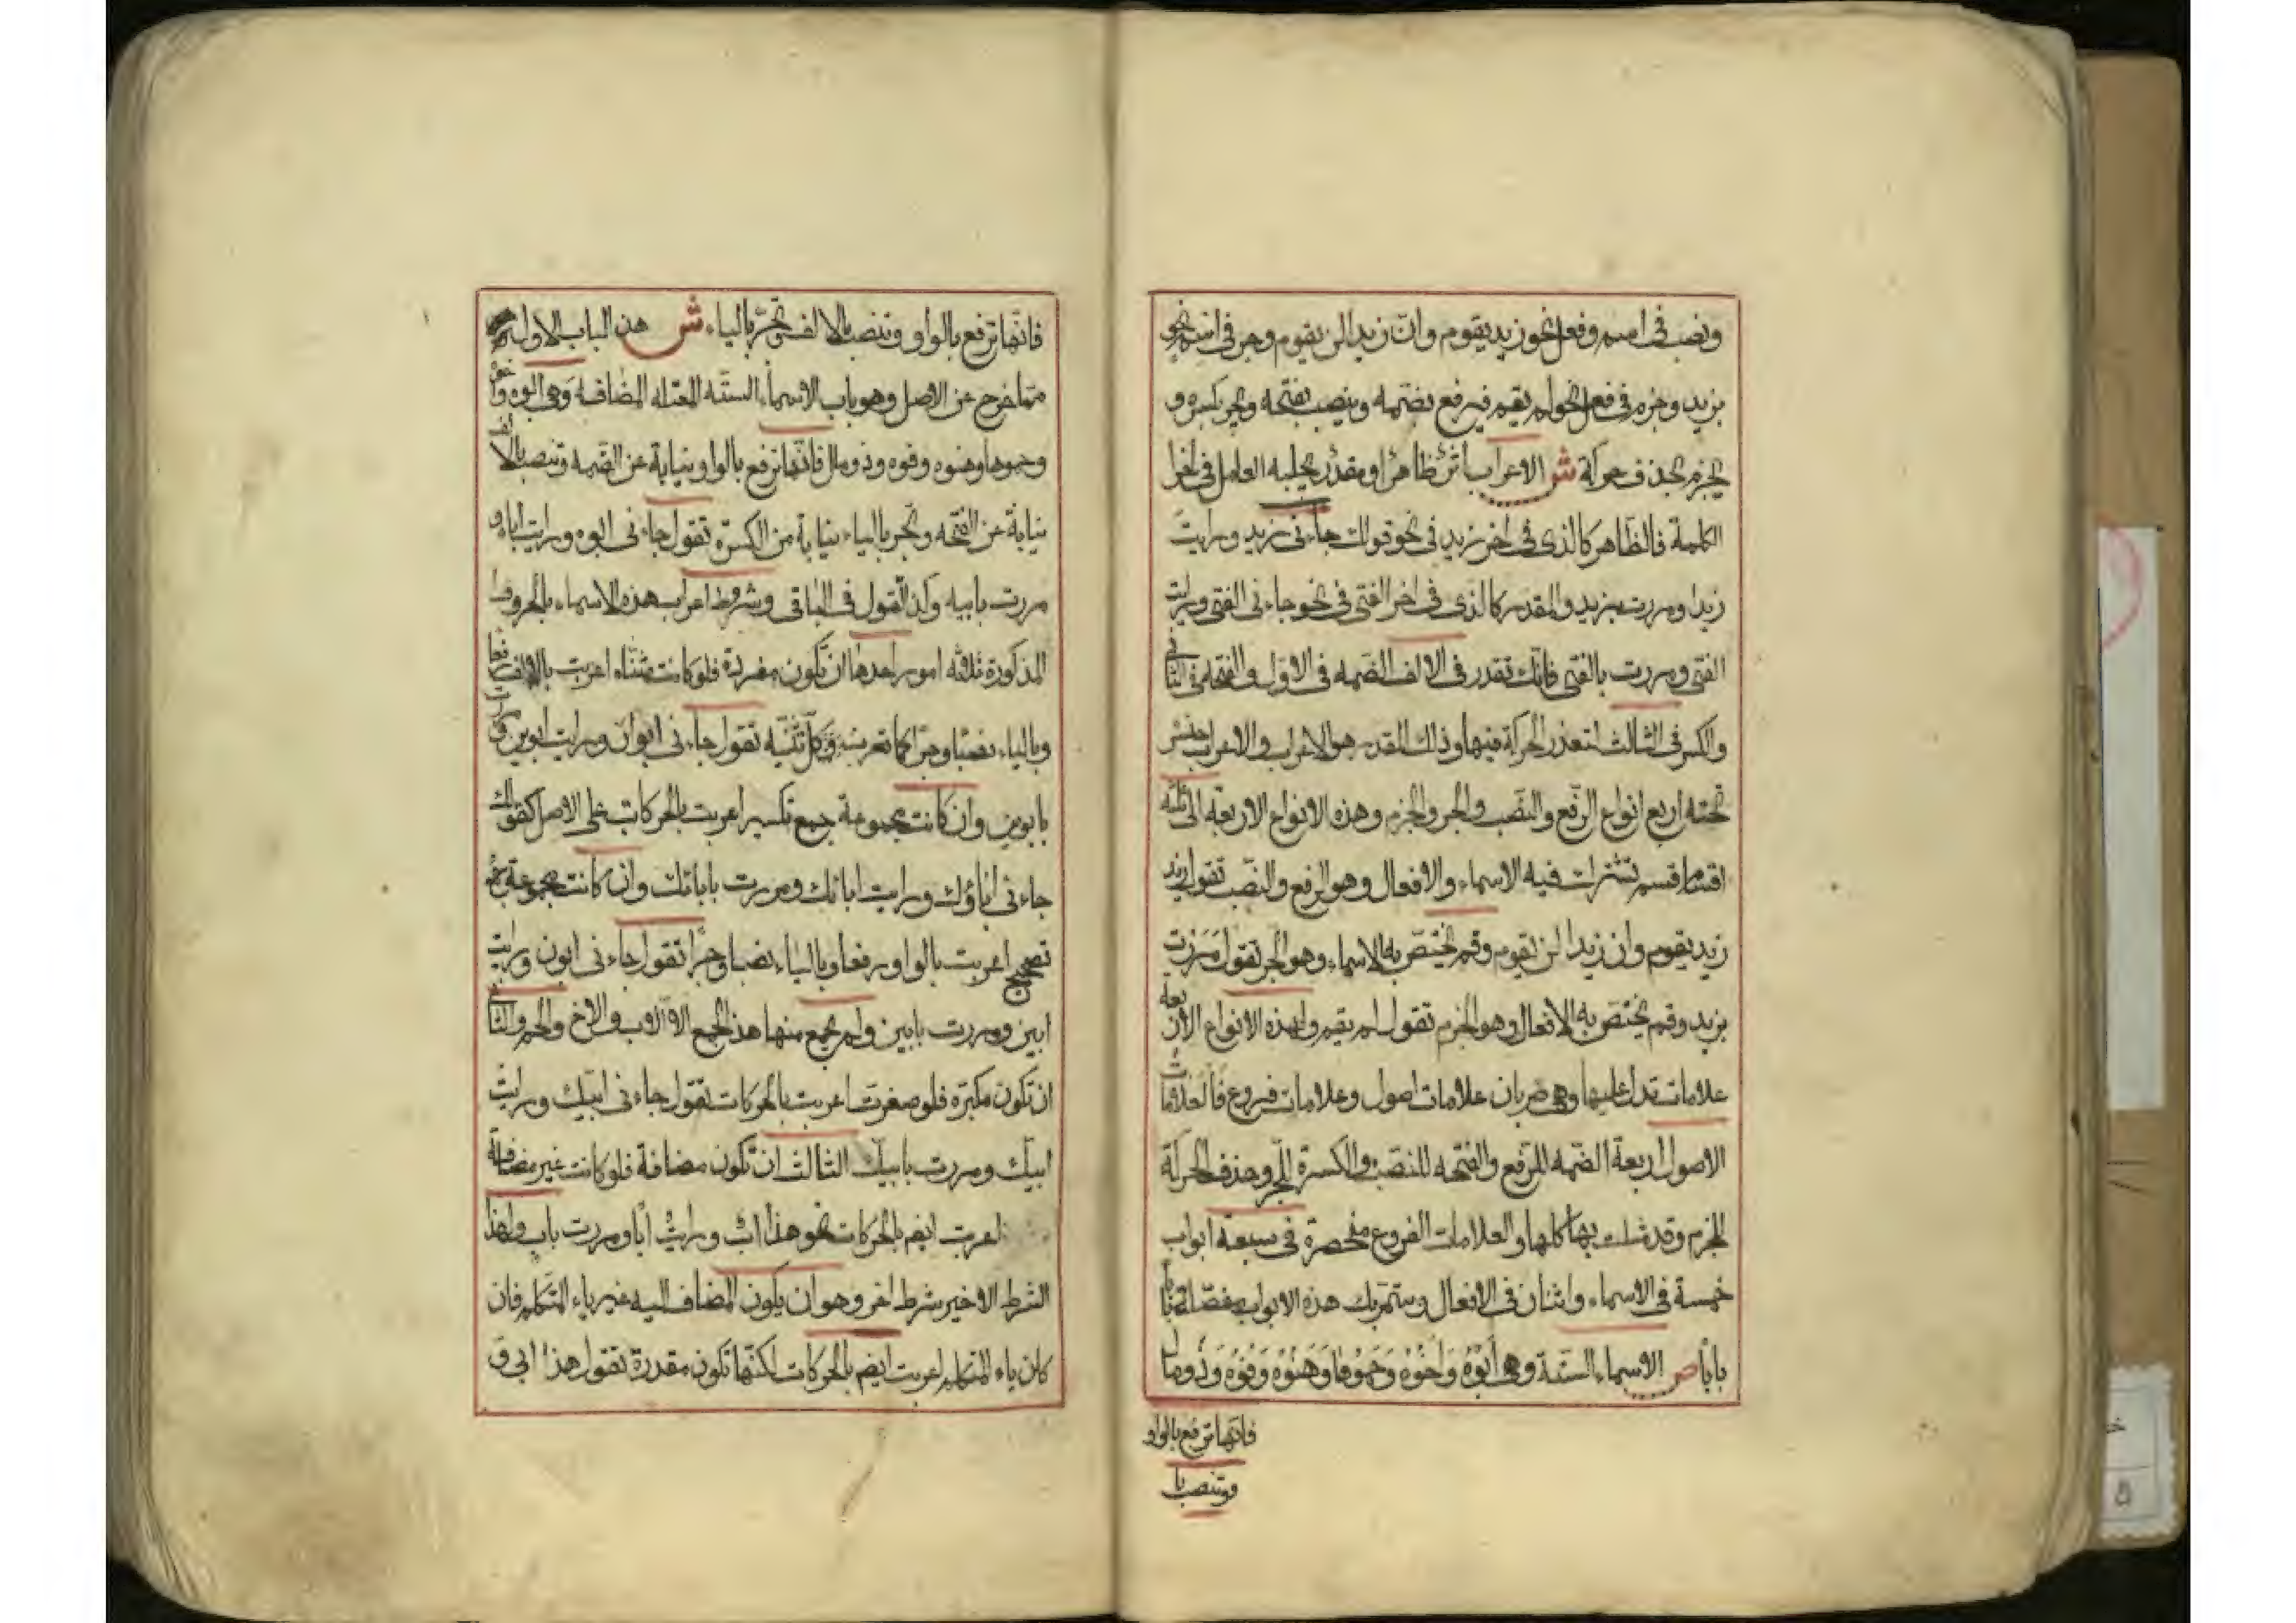 ونصب في اسم وفعل نحو زيد يقوم وان زيدا لن يقوم وجر في اسم نحو
بزيد وجزم في فعل نحو لم يقم فيرفع بضمه وينصب بفتحه ويجر بكسره و
يجزم بحذف حركة ش الاعراب اثر ظاهر او مقدر يجلبه العامل في اخر
الكلمة فالظاهر كالذي في اخر زيد في نحو قولك جاءني زيد ورايت
زيدا ومررت بزيد والمقدر كالذي في اخر الفتى في نحو جاءني الفتى ورايت
الفتى ومررت بالفتى فانك تقدر في الالف الضمه في الاول والفتحة في الثاني
والكسر في الثالث لتعذر الحركة فيها وذلك المقدر هو الاعراب والاعراب جنس
تحته اربع انواع الرفع والنصب والجر والجزم وهذه الانواع الاربعه الى ثلثه
اقسام قسم تشترك فيه الاسماء والافعال وهو الرفع والنصب تقول
زيد يقوم وان زيدا لن يقوم وقسم يختص به الاسماء وهو الجر تقول مررت
بزيد وقسم يختص به الافعال وهو الجزم تقول لم يقم ولهذه الانواع الاربعة
علامات تدل عليها وهي ضربان علامات اصول وعلامات فروع فالعلامات
الاصول اربعة الضمه للرفع والفتحه للنصب والكسرة للجر وحذف الحركة
للجزم وقد مثلت بها كلها والعلامات الفروع منحصرة في سبعة ابواب
خمسة في الاسماء واثنان في الافعال وستمر بك هذه الابواب مفصلة بابا
بابا ص الاسماء الستة وهي ابوه واخوه وحموها وهنوه وفوه وذو مال
فانها ترفع بالواو
وتنصب با
فانها ترفع بالواو وتنصب بالالف وتجر بالياء ش هذا الباب الاول
مما خرج عن الاصل وهو باب الاسماء الستة المعتله المضافه وهي ابوه واخوه
وحموها وهنوه وفوه وذو مال فانها ترفع بالواو نيابة عن الضمه وتنصب بالالف
نيابة عن الفتحه وتجر بالياء نيابة من الكسرة تقول جاءني ابوه ورايت اباه و
مررت بابيه وكذا القول في الباقي وشروط اعراب هذه الاسماء بالحروف
المذكورة ثلاثه امور احدها ان تكون مفردة فلو كانت مثناه اعربت بالالف رفعا
وبالياء نصبا وجرا كما تعرب كل تثنيه تقول جاءني ابوان ورايت ابوين ومررت
بابوين وان كانت مجموعة جمع تكسير اعربت بالحركات على الاصل كقولك
جاءني اباؤك ورايت ابائك ومررت بابائك وان كانت مجموعة جمع
تصحيح اعربت بالواو رفعا وبالياء نصبا وجرا تقول جاءني ابون ورايت
ابين ومررت بابين ولم يجمع منها هذا الجمع الا الاب والاخ والحم والثاني
ان تكون مكبرة فلو صغرت اعربت بالحركات تقول جاءني ابيك ورايت
ابيك ومررت بابيك الثالث ان تكون مضافة فلو كانت غير مضافة
اعربت ايضم بالحركات نحو هذا اب ورايت ابا ومررت باب ولهذا
الشرط الاخير شرط اخر وهو ان يكون المضاف اليه غير ياء المتكلم فان
كان ياء المتكلم اعربت ايضم بالحركات لكنها تكون مقدرة تقول هذا ابي و